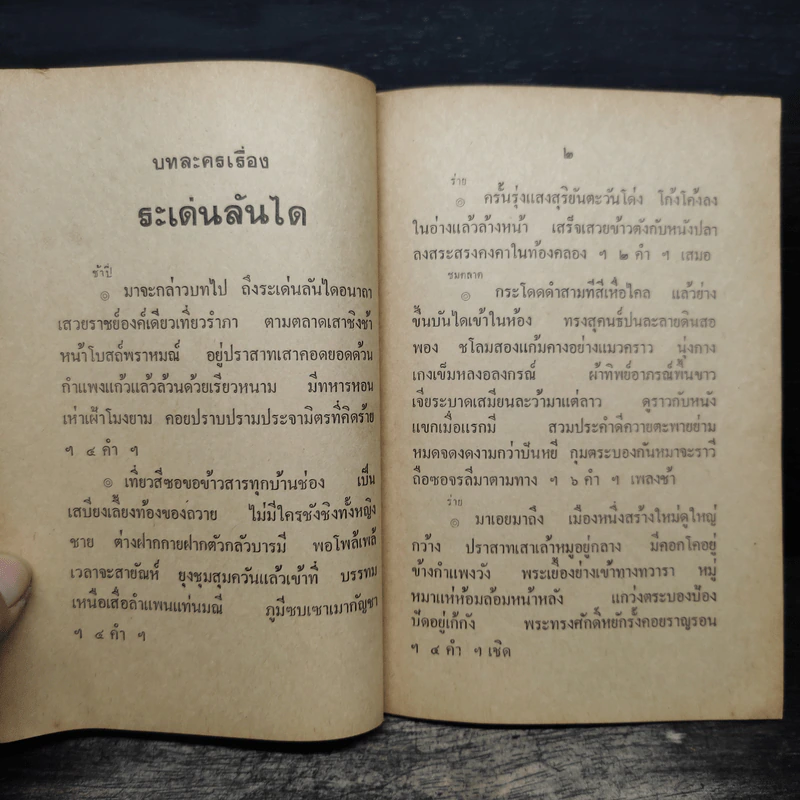 บทละครเรื่อง
ระเด่นลันได
ช้าปี่
๏ มาจะกล่าวบทไป ถึงระเด่นลันไดอนาถา
เสวยราชย์องค์เดียวเที่ยวรำภา ตามตลาดเสาชิงช้า
หน้าโบสถ์พราหมณ์ อยู่ปราสาทเสาคอดยอดด้วน
กำแพงแก้วแล้วล้วนด้วยเรียวหนาม มีทหารหอน
เห่าเฝ้าโมงยาม คอยปราบปรามประจามิตรที่คิดร้าย
ฯ ๔ คำ ฯ
๏ เที่ยวสีซอขอข้าวสารทุกบ้านช่อง เป็น
เสบียงเลี้ยงท้องของถวาย ไม่มีใครชังชิงทั้งหญิง
ชาย ต่างฝากกายฝากตัวกลัวบารมี พอโพล้เพล้
เวลาจะสายัณห์ ยุงชุมสุมควันแล้วเข้าที่ บรรทม
เหนือเสื่อลำแพนแท่นมณี ภูมีซบเซาเมากัญชา
ฯ ๔ คำ ฯ
๒
ร่าย
๏ ครั้นรุ่งแสงสุริยันตะวันโด่ง โก้งโค้งลง
ในอ่างแล้วล้างหน้า เสร็จเสวยข้าวตังกับหนังปลา
ลงสระสรงคงคาในท้องคลอง ฯ ๒ คำ ฯ เสมอ
ชมตลาด
๏ กระโดดดำสามทีสีเหื่อไคล แล้วย่าง
ขึ้นบันไดเข้าในห้อง ทรงสุคนธ์ปนละลายดินสอ
พอง ชโลมสองแก้มคางอย่างแมวคราว นุ่งกาง
เกงเข็มหลงอลงกรณ์ ผ้าทิพย์อาภรณ์พื้นขาว
เจียระบาดเสมียนละว้ามาแต่ลาว ดูราวกับหนัง
แขกเมื่อแรกมี สวมประคำดีควายตะพายย่าม
หมดจดงดงามกว่าปันหยี กุมตระบองกันหมาจะราวี
ถือซอจรลีมาตามทาง ฯ ๖ คำ ฯ เพลงช้า
ร่าย
๏ มาเอยมาถึง เมืองหนึ่งสร้างใหม่ดูใหญ่
กว้าง ปราสาทเสาเล้าหมูอยู่กลาง มีคอกโคอยู่
ข้างกำแพงวัง พระเยื้องย่างเข้าทางทวารา หมู่
หมาแห่ห้อมล้อมหน้าหลัง แกว่งตระบองป้อง
ปัดอยู่เก้กัง พระทรงศักดิ์หยักรั้งคอยราญรอน
ฯ ๔ คำ ฯ เชิด